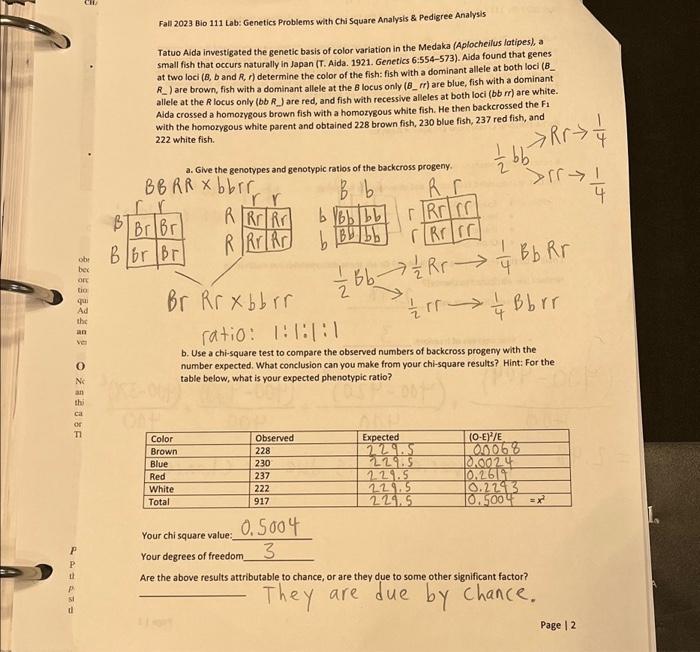 Fall 2023 Bio 111 Lab: Genetics Problems with Chi Square Analysis & Pedigree Analysis
Tatuo Aida investigated the genetic basis of color variation in the Medaka (Aplocheilus latipes), a
small fish that occurs naturally in Japan (T. Aida. 1921. Genetics 6:554–573). Aida found that genes
at two loci (B, b and R, r) determine the color of the fish: fish with a dominant allele at both loci (B_
R_) are brown, fish with a dominant allele at the B locus only (B_ rr) are blue, fish with a dominant
allele at the R locus only (bb R_) are red, and fish with recessive alleles at both loci (bb rr) are white.
Aida crossed a homozygous brown fish with a homozygous white fish. He then backcrossed the F1
with the homozygous white parent and obtained 228 brown fish, 230 blue fish, 237 red fish, and
222 white fish.
1/2 bb > Rr → 1/4
> rr → 1/4
a. Give the genotypes and genotypic ratios of the backcross progeny.
BBRR x bbrr
r r
B Br Br
B Br Br
r r
R Rr Rr
R Rr Rr
B b
b Bb bb
b Bb bb
R r
r Rr rr
r Rr rr
1/2 Bb → 1/2 Rr → 1/4 BbRr
→ 1/2 rr → 1/4 Bbrr
Br Rr x bbrr
ratio: 1:1:1:1
b. Use a chi-square test to compare the observed numbers of backcross progeny with the
number expected. What conclusion can you make from your chi-square results? Hint: For the
table below, what is your expected phenotypic ratio?
Color Observed Expected (O-E)²/E
Brown 228 229.5 0.0068
Blue 230 229.5 0.0024
Red 237 229.5 0.2619
White 222 229.5 0.2293
Total 917 229.5 0.5004 =x²
Your chi square value: 0.5004
Your degrees of freedom 3
Are the above results attributable to chance, or are they due to some other significant factor?
They are due by chance.
Page | 2